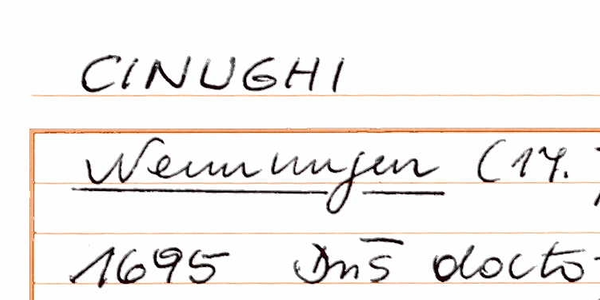 CINUGHI
Nennungen (14.
1695 Dns̄ docto